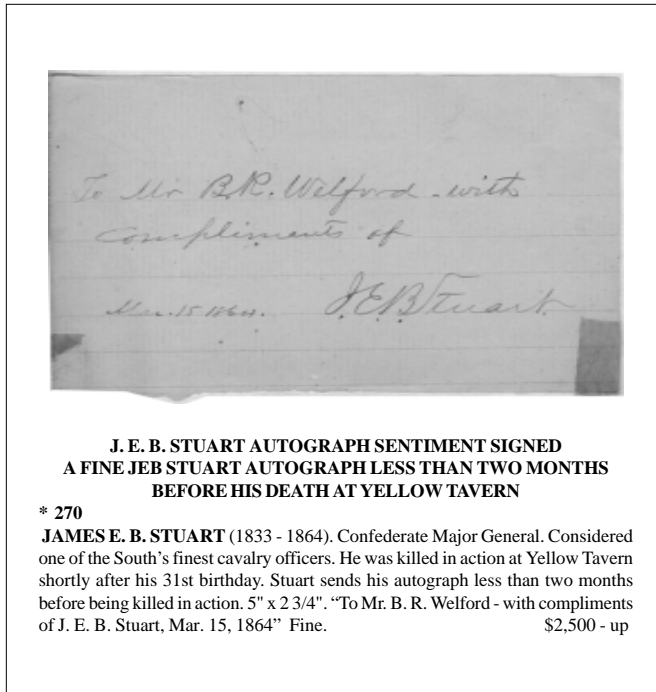 To Mr B.R. Welford - with
compliments of
Mar. 15 1864. J.E.B Stuart
J. E. B. STUART AUTOGRAPH SENTIMENT SIGNED
A FINE JEB STUART AUTOGRAPH LESS THAN TWO MONTHS
BEFORE HIS DEATH AT YELLOW TAVERN
* 270
JAMES E. B. STUART (1833 - 1864). Confederate Major General. Considered
one of the South's finest cavalry officers. He was killed in action at Yellow Tavern
shortly after his 31st birthday. Stuart sends his autograph less than two months
before being killed in action. 5" x 2 3/4". “To Mr. B. R. Welford - with compliments
of J. E. B. Stuart, Mar. 15, 1864” Fine. $2,500 - up